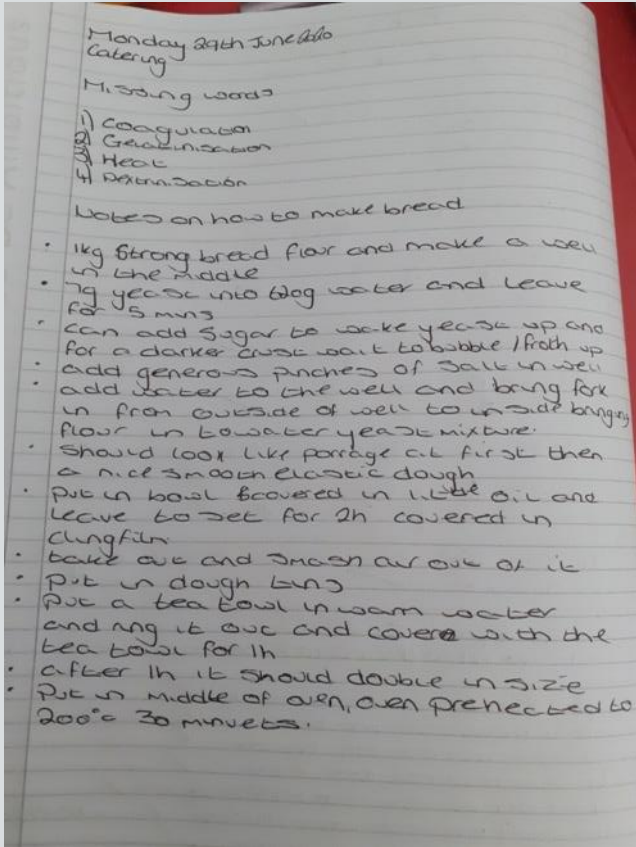 Monday 29th June 2020
Catering
Missing words
1) Coagulation
2) Gelatinisation
3) Heat
4) Dextrinisation
Notes on how to make bread
• 1kg Strong bread flour and make a well
in the middle
• 7g yeast into 620g water and leave
for 5 mins
• can add sugar to wake yeast up and
for a darker crust wait to bubble / froth up
• add generous pinches of salt in well
• add water to the well and bring fork
in from outside of well to inside bringing
flour in to water yeast mixture.
• Should look like porrage at first then
a nice smooth elastic dough
• put in bowl covered in little oil and
leave to set for 2h covered in
clingfilm
• take out and smash air out of it
• put in dough tins
• put a tea towl in warm water
and ring it out and cover with the
tea towl for 1h
• after 1h it should double in size
• Put in middle of oven, oven preheated to
200°c 30 minuets.